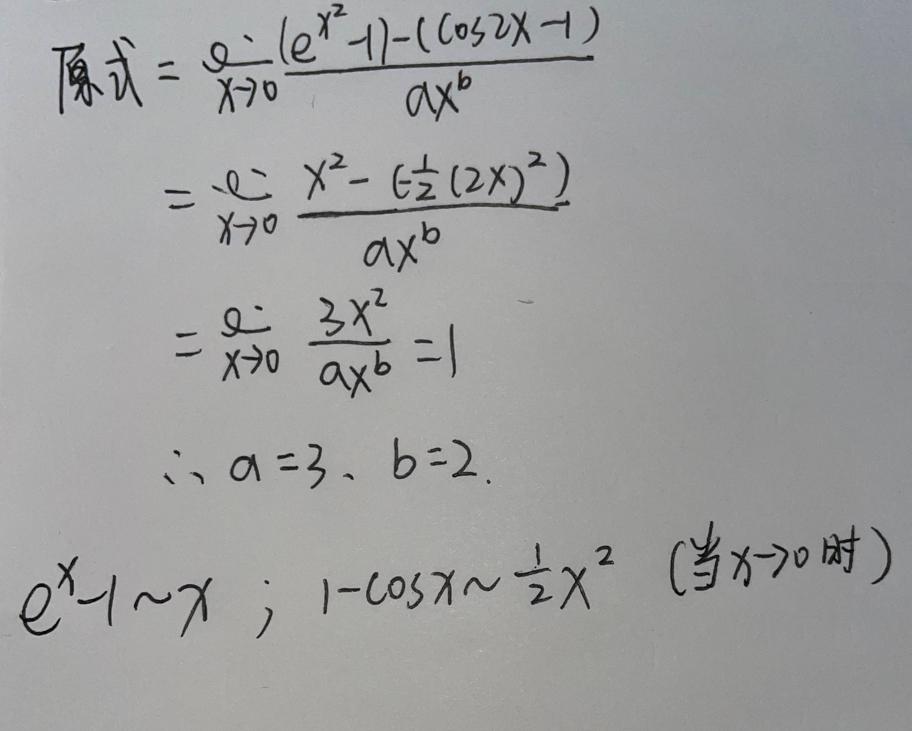 原式 = lim x→0 (e^{x²}-1)-(cos2x-1) / ax^b
= lim x→0 x²-(-½(2x)²) / ax^b
= lim x→0 3x² / ax^b = 1
∴ a=3、b=2.
e^x-1~x ; 1-cosx~½x² (当x→0时)